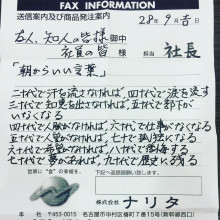 FAX INFORMATION
送信案内及び商品発注案内
28年9月吉日
友人、知人の皆様 御中
社員の皆様
担当 社長
「朝からいい言葉」
二十代で汗を流さなければ、四十代で涙を流す
三十代で知恵を出さなければ、五十代で部下が
いなくなる
四十代で人脈がなければ、六十代で仕事がなくなる
五十代で
六十代で希望がなければ、八十代で
七十代で夢があれば、九十代で歴史に残る
世界に“食”の幸福を。
株式会社 ナリタ
本社 〒453-0015 名古屋市中村区椿町7番15号(新幹線西口)